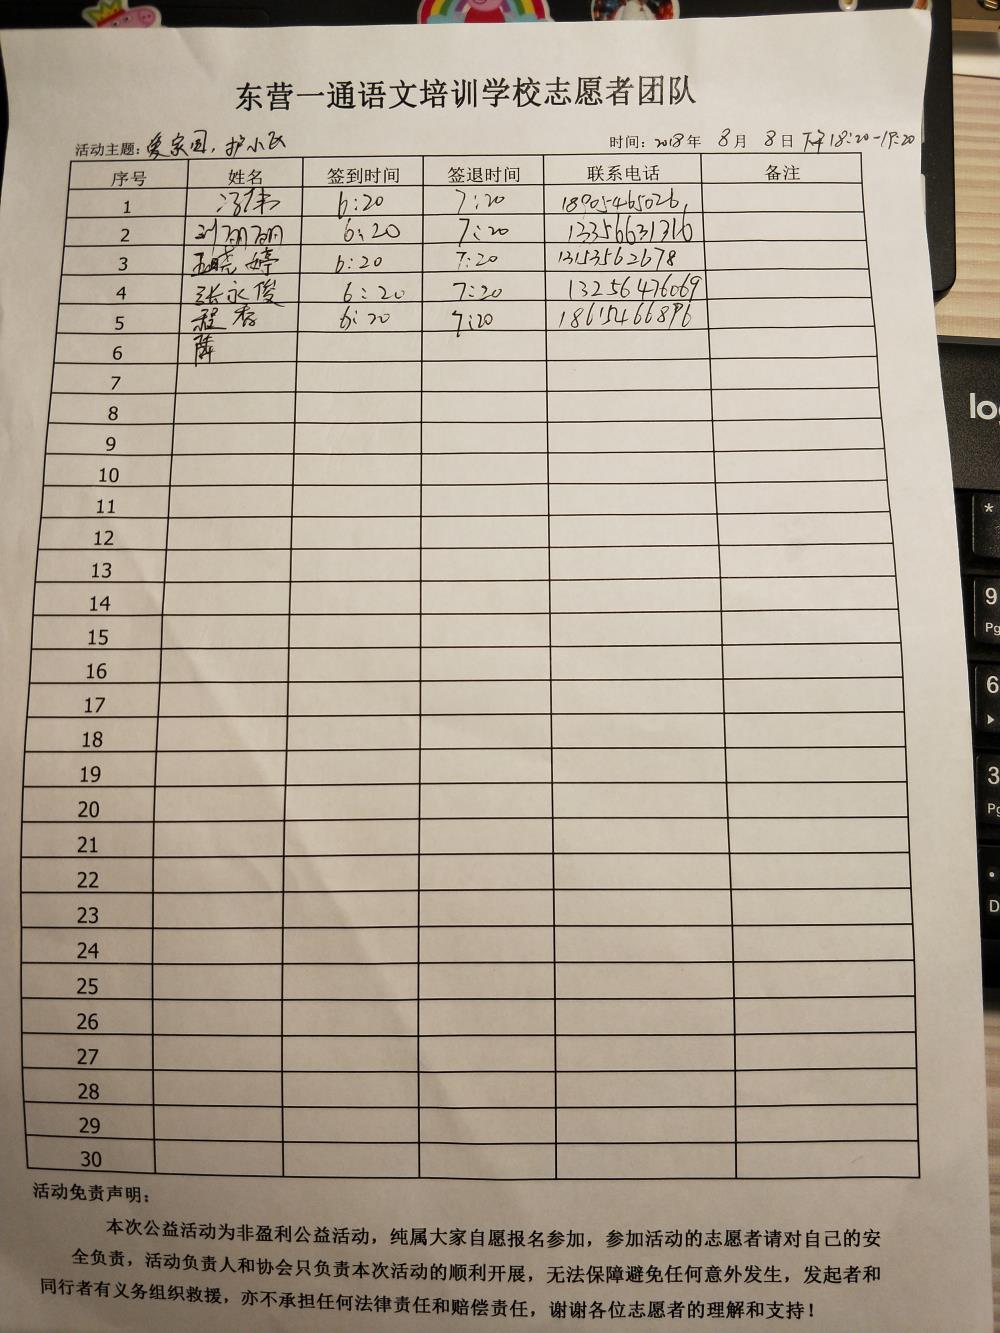 东营一通语文培训学校志愿者团队
活动主题：爱家园，护小区 时间：2018年 8月 8日 下午18:20-19:20
序号 姓名 签到时间 签退时间 联系电话 备注
1 冯伟 6:20 7:20 18905465026
2 刘丽丽 6:20 7:20 13356631316
3 王晓婷 6:20 7:20 13153562678
4 张永俊 6:20 7:20 13256476069
5 程春 6:20 7:20 18615466896
6
7
8
9
10
11
12
13
14
15
16
17
18
19
20
21
22
23
24
25
26
27
28
29
30
活动免责声明：
本次公益活动为非盈利公益活动，纯属大家自愿报名参加，参加活动的志愿者请对自己的安
全负责，活动负责人和协会只负责本次活动的顺利开展，无法保障避免任何意外发生，发起者和
同行者有义务组织救援，亦不承担任何法律责任和赔偿责任，谢谢各位志愿者的理解和支持！
log
*
9
Pg
6
3
Pg
.
D